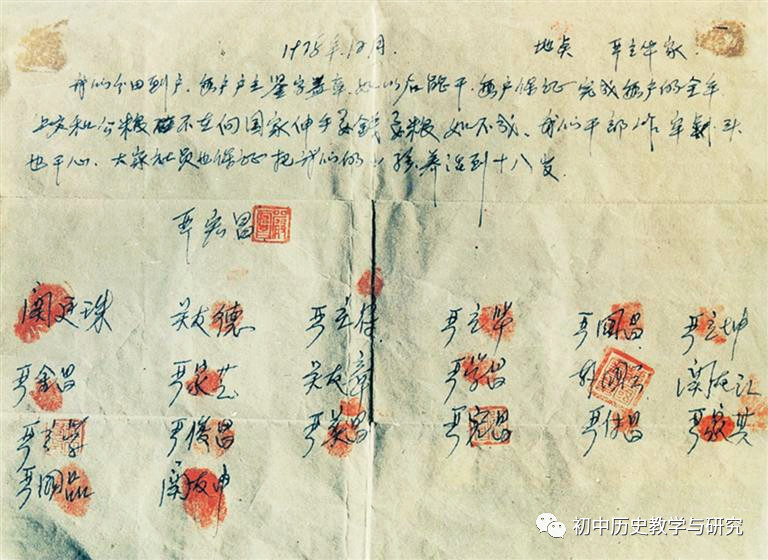 1978年12月. 地点 严立华家
我们分田到户,每户户主签字盖章,如以后能干,每户保证完成每户的全年
上交和公粮不在向国家伸手要钱要粮,如不成,我们干部作牢刹头
也干心,大家社员也保证把我们的小孩养活到十八岁.
严宏昌
関廷珠 关友德 严立符 严立华 严国昌 严立坤
严金昌 严家芝 关友章 严学昌 韩国云 関友江
严立学 严俊昌 严美昌 严宏昌 严付昌 严家其
严国品 関友申
初中历史教学与研究